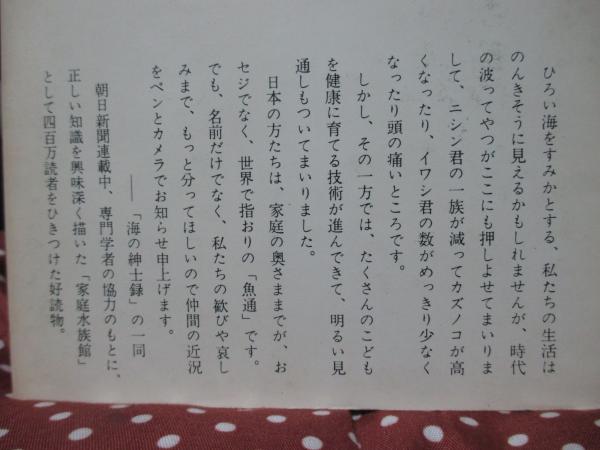 ひろい海をすみかとする、私たちの生活は
のんきそうに見えるかもしれませんが、時代
の波ってやつがここにも押しよせてまいりま
して、ニシン君の一族が減ってカズノコが高
くなったり、イワシ君の数がめっきり少なく
なったり頭の痛いところです。
しかし、その一方では、たくさんのこども
を健康に育てる技術が進んできて、明るい見
通しもついてまいりました。
日本の方たちは、家庭の奥さままでが、お
セジでなく、世界で指おりの「魚通」です。
でも、名前だけでなく、私たちの歓びや哀し
みまで、もっと分ってほしいので仲間の近況
をペンとカメラでお知らせ申上げます。
――「海の紳士録」の一同
朝日新聞連載中、専門学者の協力のもとに、
正しい知識を興味深く描いた「家庭水族館」
として四百万読者をひきつけた好読物。